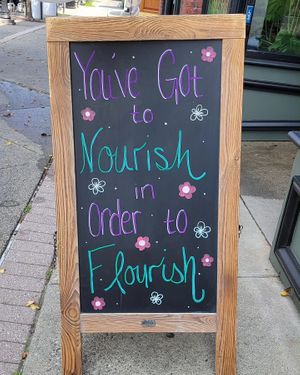 You've Got
to
Nourish
in
Order to
Flourish